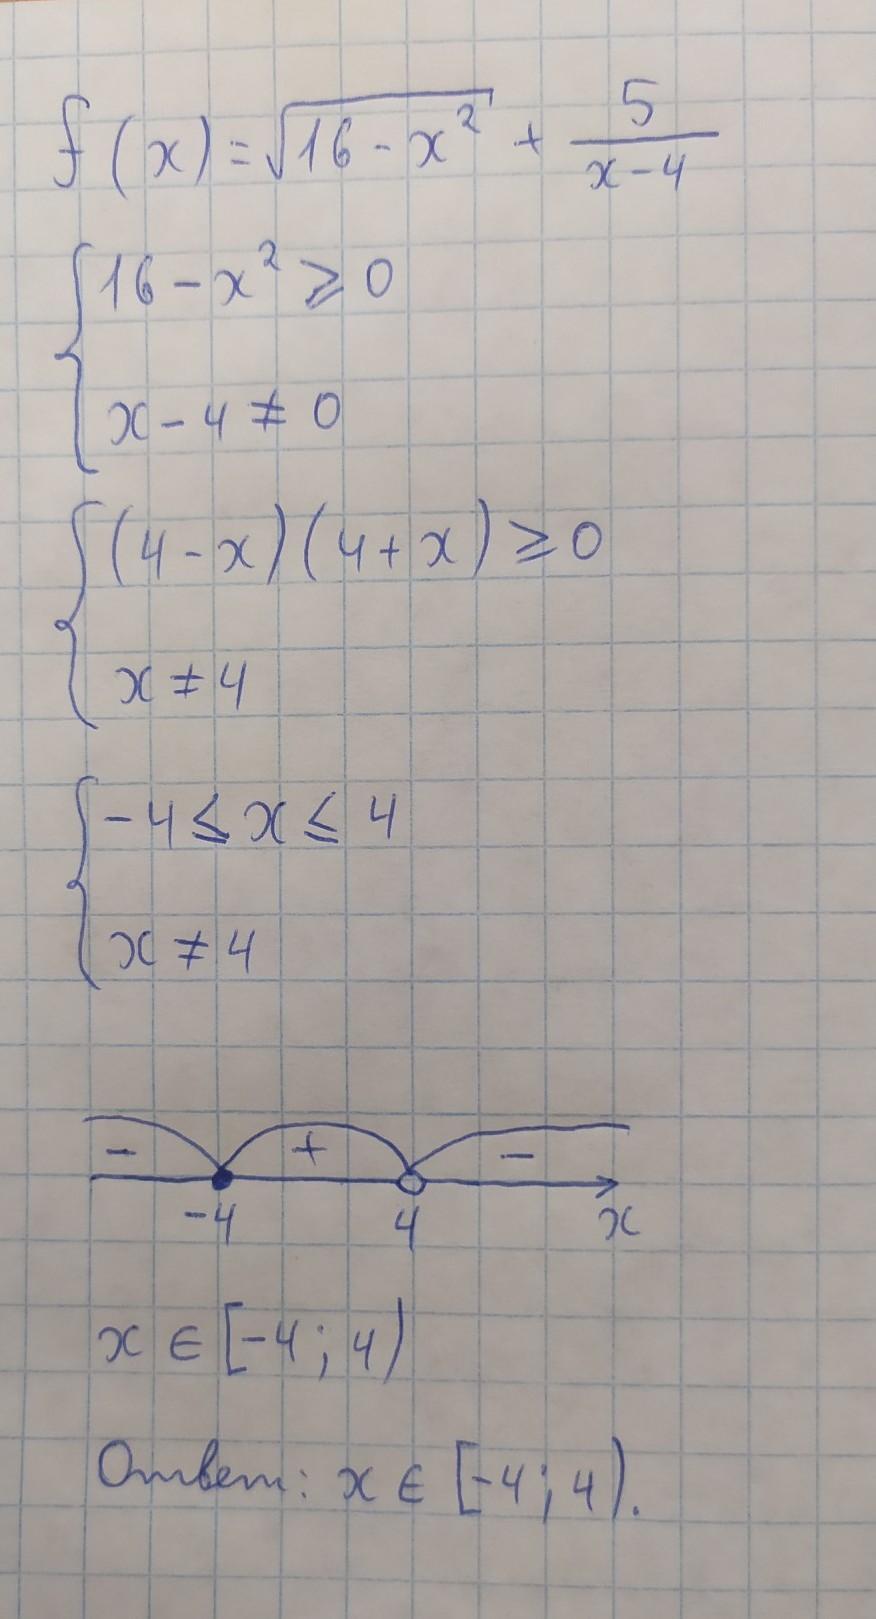 f(x)=√(16-x²) + 5/(x-4)
{16-x² ⩾ 0
x-4 ≠ 0
{(4-x)(4+x) ≥ 0
x ≠ 4
{-4 ≤ x ≤ 4
x ≠ 4
- + -
-4 4 x
x ∈ [-4; 4)
Ответ: x ∈ [-4; 4).